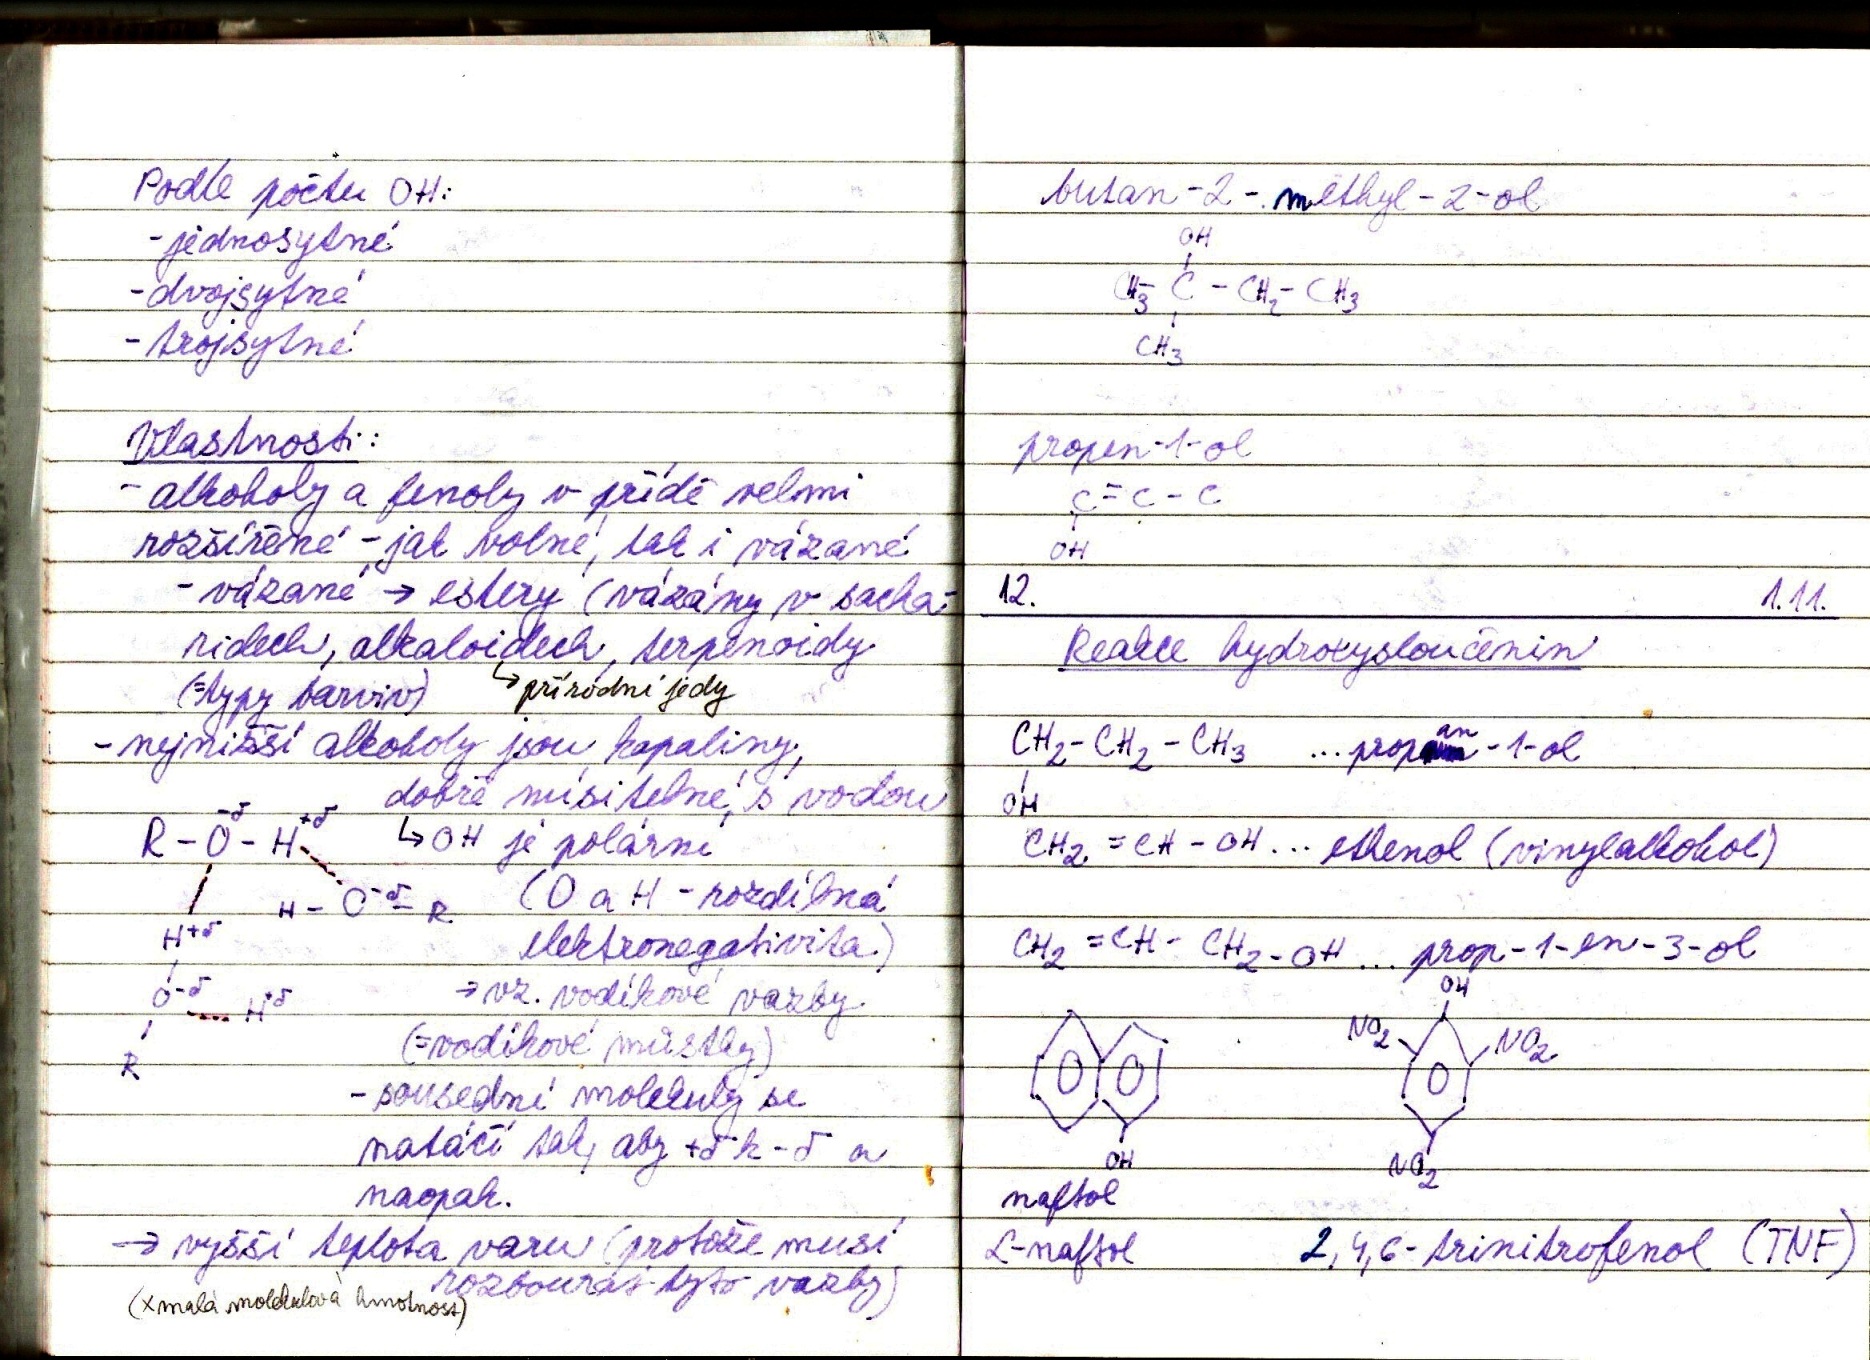 Podle počtu OH:
- jednosytné
- dvojsytné
- trojsytné
Vlastnosti:
- alkoholy a fenoly v přídě velmi
rozšířené - jak volné, tak i vázané
- vázané → estery (vázány v sacha-
ridech, alkaloidech, terpenoidy
(=typy barviv) ↳ přírodní jedy
- nejnižší alkoholy jsou kapaliny,
dobře mísitelné s vodou
R - O-δ - H+δ ↳ OH je polární
H - O-δ - R (O a H - rozdílná
H+δ elektronegativita)
O-δ H+δ → vz. vodíkové vazby
R (=vodíkové můstky)
- sousední molekuly se
natáčí tak, aby +δ k -δ a
naopak.
→ vyšší teplota varu (protože musí
rozbourat tyto vazby)
(x malá molekulová hmotnost)
butan-2-methyl-2-ol
OH
CH3 - C - CH2 - CH3
CH3
propen-1-ol
C = C - C
OH
12. 1.11.
Reakce hydroxysloučenin
CH2 - CH2 - CH3 ... propan-1-ol
OH
CH2 = CH - OH ... ethenol (vinylalkohol)
CH2 = CH - CH2 - OH ... prop-1-en-3-ol
OH
NO2 NO2
OH NO2
naftol
α-naftol 2,4,6-trinitrofenol (TNF)